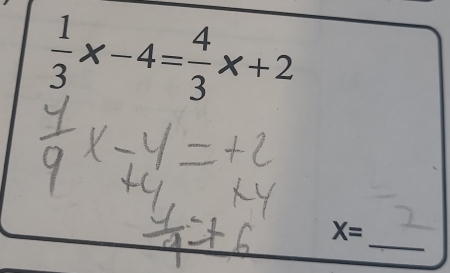 1/3 x - 4 = 4/3 x + 2
4/9 x - 4 = +2
+4 +4
4/9 = + 6
x= __